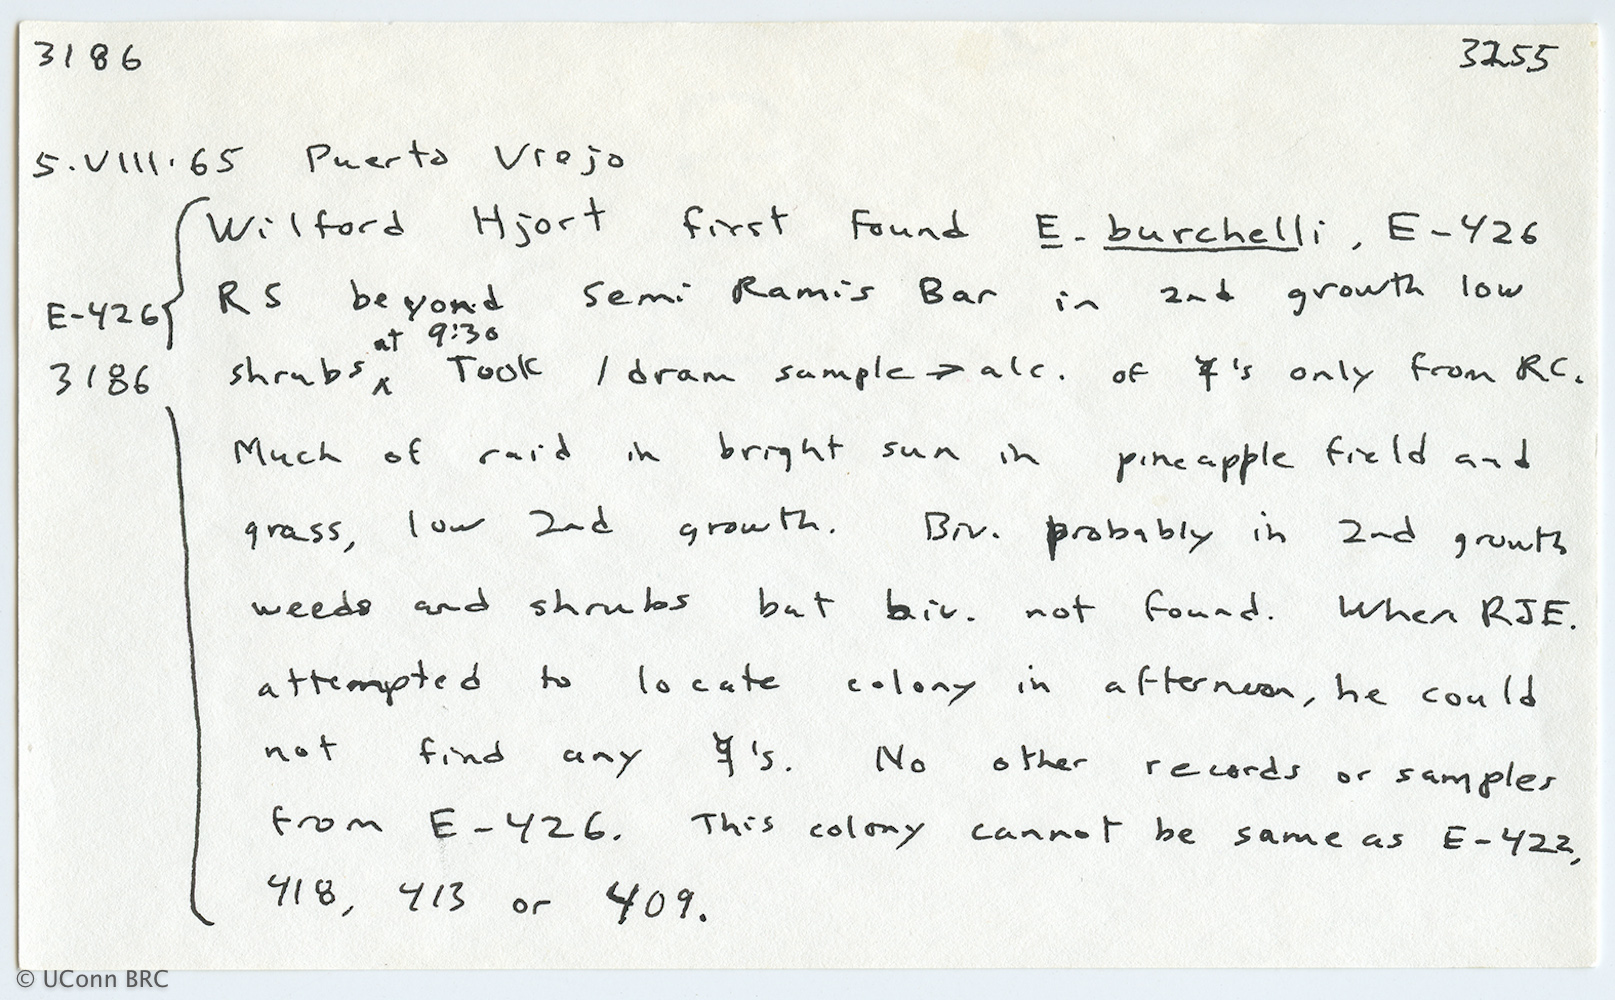 3186 3255
5.VIII.65 Puerto Viejo
Wilford Hjort first found E. burchelli, E-426
E-426 RS beyond Semi Ramis Bar in 2nd growth low
at 9:30
3186 shrubs ^ Took 1 dram sample → alc. of ☿'s only from RC.
Much of raid in bright sun in pineapple field and
grass, low 2nd growth. Biv. probably in 2nd growth
weeds and shrubs but biv. not found. When RJE.
attempted to locate colony in afternoon, he could
not find any ☿'s. No other records or samples
from E-426. This colony cannot be same as E-422,
418, 413 or 409.
© UConn BRC